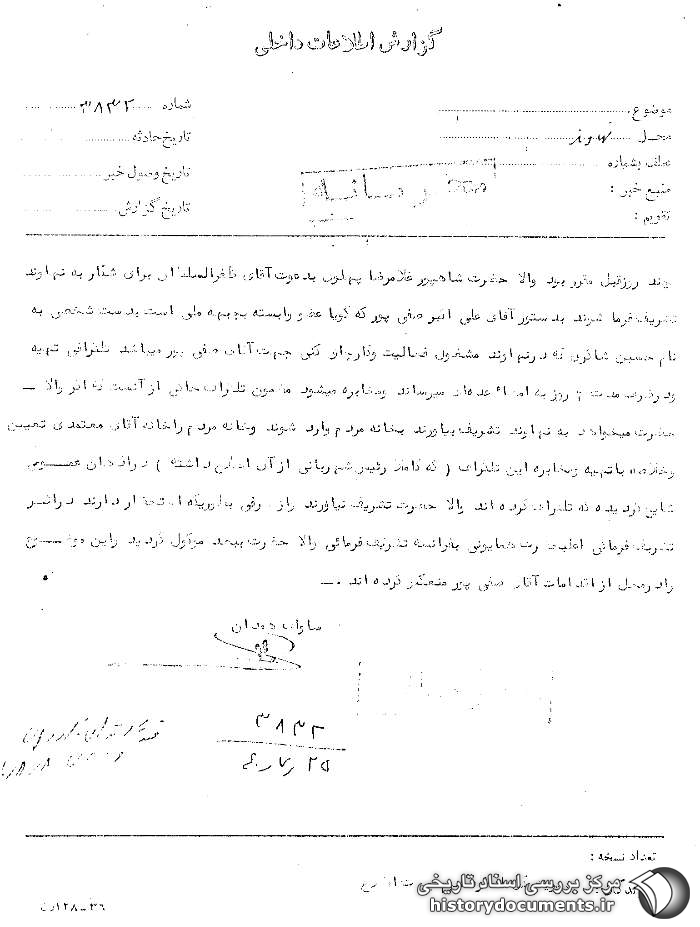 گزارش اطلاعات داخلی
موضوع
شماره ۳۸۳۲
محل
تاریخ حادثه
عطف بشماره
تاریخ وصول خبر
منبع خبر :
تاریخ گزارش
تقویم :
چند روز قبل مقرر بود والا حضرت شاهپور غلامرضا پهلوی بدعوت آقای ظفرالسلطان برای شکار به نهاوند
تشریف فرما شوند بدستور آقای علی اکبر صفی پور که گویا عضو وابسته بجبهه ملی است بدست شخصی به
نام حسین شاکری که در نهاوند مشغول فعالیت وکارچاق کنی جهت آقای صفی پور میباشد تلگرافی تهیه
ودرظرف مدت ۲ روز به امضاء عده‌ای میرساند ومخابره میشود مضمون تلگراف حاکی از آنست که اگر والا ـ
حضرت میخواهد به نهاوند تشریف بیاورند بخانه مردم وارد شوند وخانه مردم راخانه آقای معتمدی تعیین
وخلاصه باتهیه ومخابره این تلگراف ( که کاملا رئیس شهربانی از آن اطلاع داشته ) در اذهان عمومی
شایع گردیده که تلگراف کرده اند والا حضرت تشریف نیاورند واز طرفی بطوریکه استحضار دارند در اثر
تشریف فرمائی اعلیحضرت همایونی بفرانسه تشریف فرمائی والا حضرت ببعد موکول گردید واین موضوع
رادرمحل از اقدامات آقای صفی پور منعکس کرده اند .ـ
ساواک همدان
۳۸۳۲
تعداد نسخه :
مرکز بررسی اسناد تاریخی
historydocuments.ir